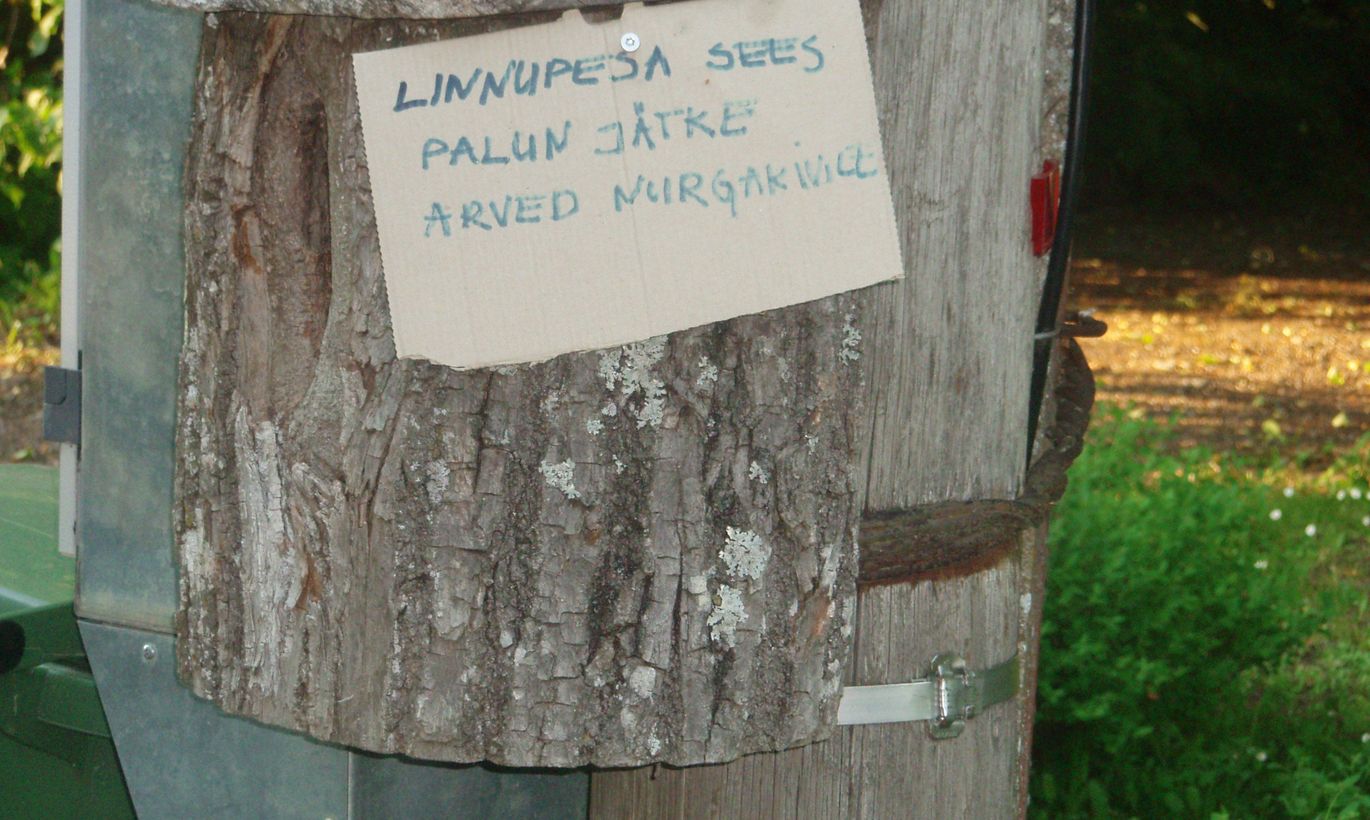 LINNUPESA SEES
PALUN JÄTKE
ARVED NURGAKIVILE